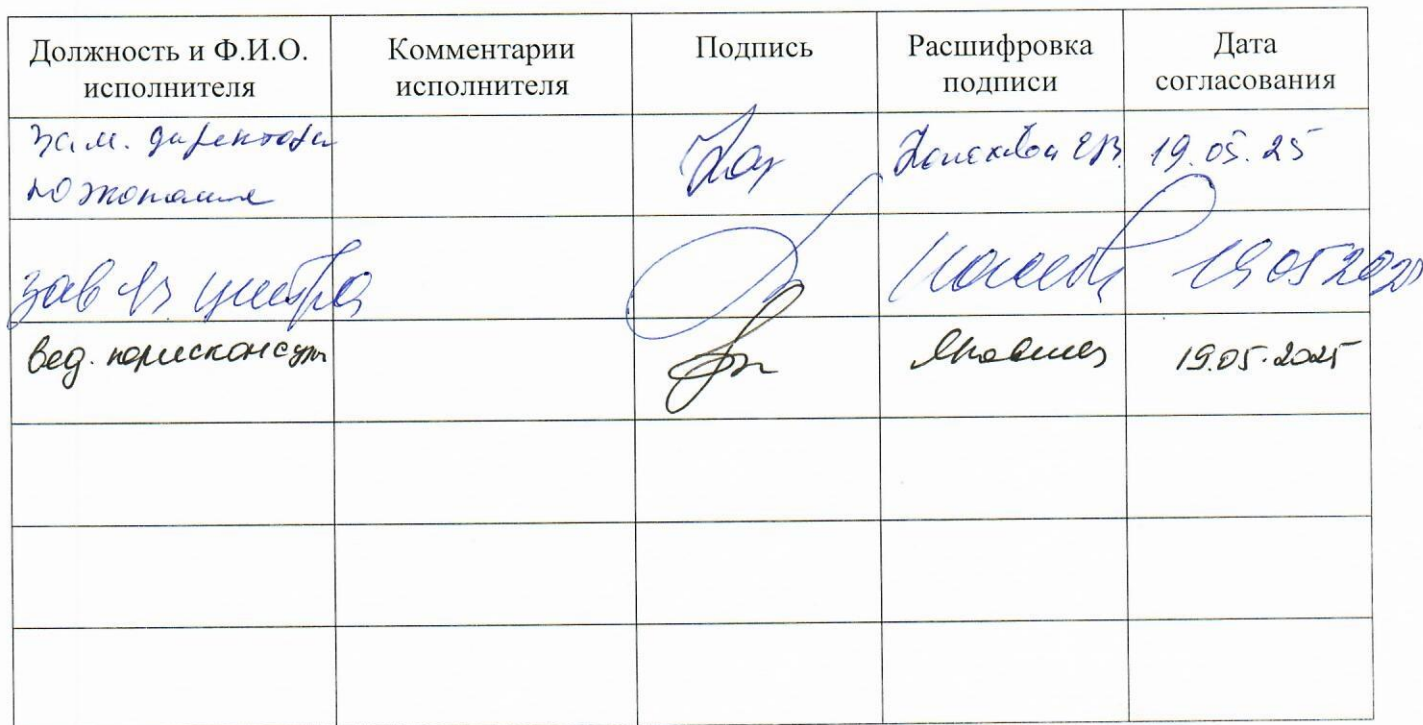 Должность и Ф.И.О. исполнителя
Комментарии исполнителя
Подпись
Расшифровка подписи
Дата согласования
Зам. директора
19.05.25
по экономике
зав центра
19 05 2025
вед. юрисконсульт
19.05.2025